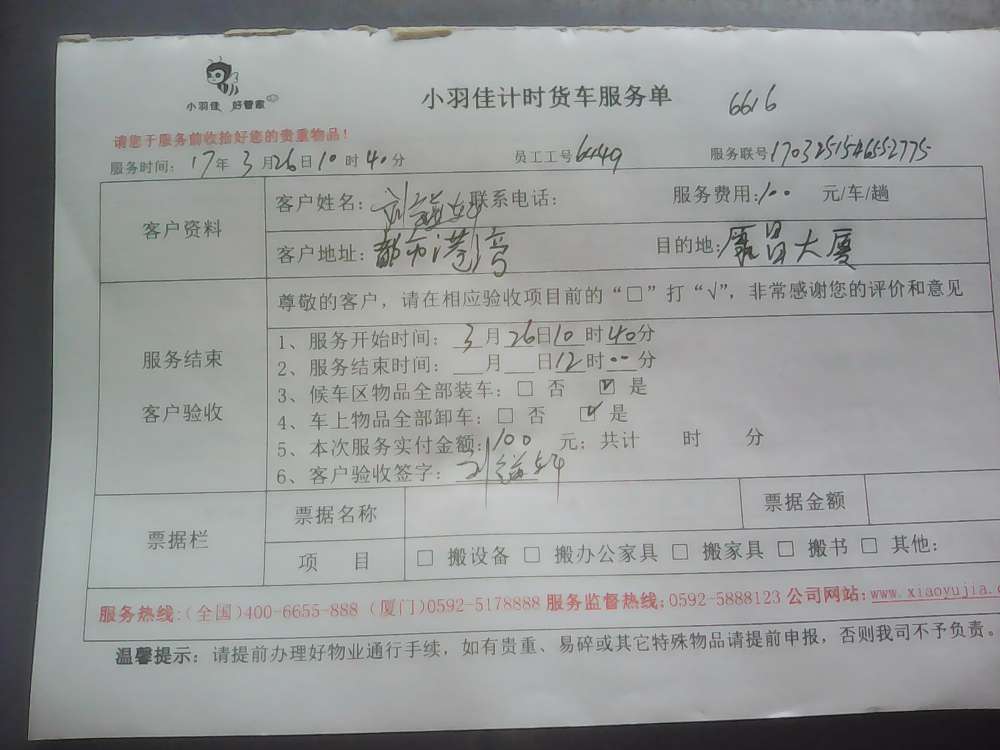 小羽佳 好管家
小羽佳计时货车服务单 6616
请您于服务前收拾好您的贵重物品！
服务时间：17年3月26日10时40分 员工工号 服务联号
客户资料
客户姓名： 联系电话： 服务费用：100 元/车/趟
客户地址：都市港湾 目的地：大厦
服务结束
客户验收
尊敬的客户，请在相应验收项目前的“□”打“√”，非常感谢您的评价和意见
1、服务开始时间：3月26日10时40分
2、服务结束时间：___月___日12时00分
3、候车区物品全部装车：□ 否 ☑ 是
4、车上物品全部卸车：□ 否 ☑ 是
5、本次服务实付金额：100 元；共计 时 分
6、客户验收签字：
票据栏
票据名称 票据金额
项 目 □ 搬设备 □ 搬办公家具 □ 搬家具 □ 搬书 □ 其他：
服务热线：（全国）400-6655-888 （厦门）0592-5178888 服务监督热线：0592-5888123 公司网站：www.xiaoyujia.
温馨提示：请提前办理好物业通行手续，如有贵重、易碎或其它特殊物品请提前申报，否则我司不予负责。